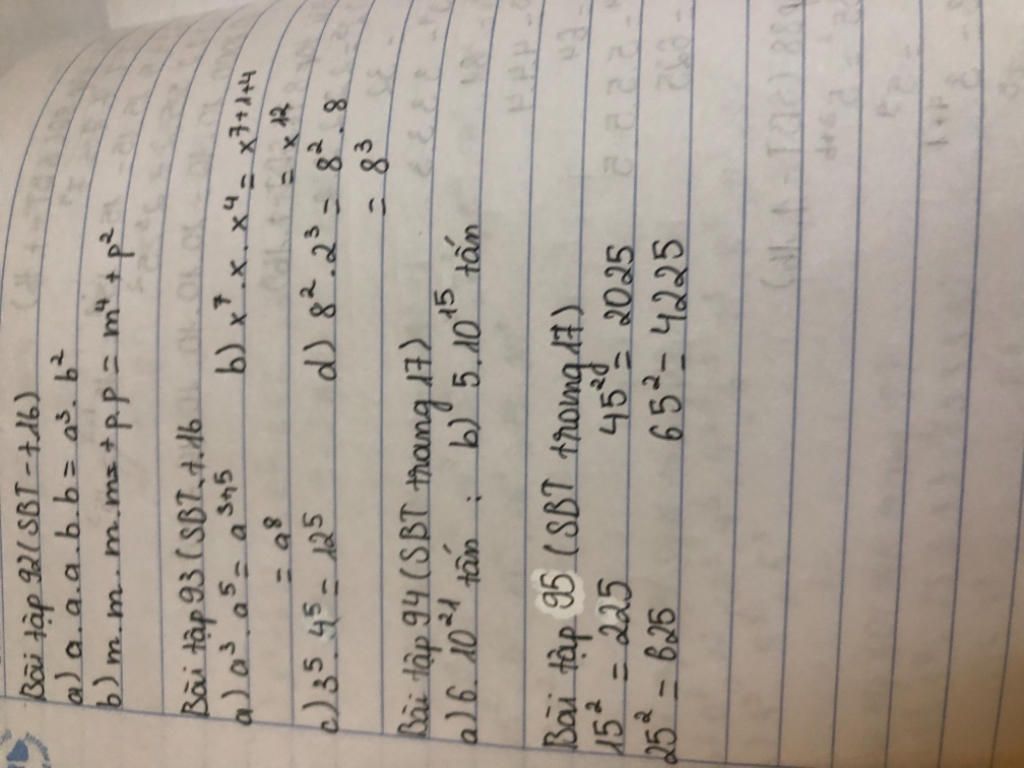 Bài tập 92 (SBT - t.16)
a) a.a.a.b.b = a³.b²
b) m.m.m.m + p.p = m⁴ + p²
Bài tập 93 (SBT t.16
a) a³.a⁵ = a³⁺⁵ b) x⁷.x.x⁴ = x⁷⁺¹⁺⁴
= a⁸ = x¹²
c) 3⁵.4⁵ = 12⁵ d) 8².2³ = 8².8
= 8³
Bài tập 94 (SBT trang 17)
a) 6.10²¹ tấn ; b) 5.10¹⁵ tấn
Bài tập 95 (SBT trang 17)
15² = 225 45² = 2025
25² = 625 65² = 4225